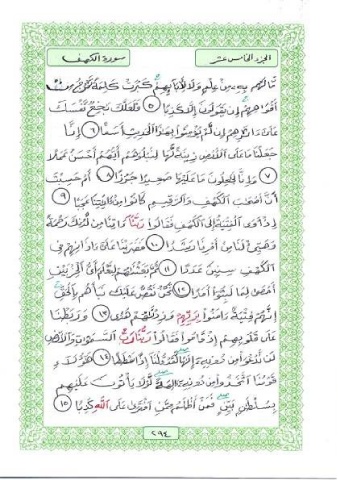 الجزء الخامس عشر
سورة الكهف
مَّا لَهُم بِهِ مِنْ عِلْمٍ وَلَا لِآبَائِهِمْ كَبُرَتْ كَلِمَةً تَخْرُجُ مِنْ
أَفْوَاهِهِمْ إِن يَقُولُونَ إِلَّا كَذِبًا ٥ فَلَعَلَّكَ بَاخِعٌ نَّفْسَكَ
عَلَىٰ آثَارِهِمْ إِن لَّمْ يُؤْمِنُوا بِهَٰذَا الْحَدِيثِ أَسَفًا ٦ إِنَّا
جَعَلْنَا مَا عَلَى الْأَرْضِ زِينَةً لَّهَا لِنَبْلُوَهُمْ أَيُّهُمْ أَحْسَنُ عَمَلًا
٧ وَإِنَّا لَجَاعِلُونَ مَا عَلَيْهَا صَعِيدًا جُرُزًا ٨ أَمْ حَسِبْتَ
أَنَّ أَصْحَابَ الْكَهْفِ وَالرَّقِيمِ كَانُوا مِنْ آيَاتِنَا عَجَبًا ٩
إِذْ أَوَى الْفِتْيَةُ إِلَى الْكَهْفِ فَقَالُوا رَبَّنَا آتِنَا مِن لَّدُنكَ رَحْمَةً
وَهَيِّئْ لَنَا مِنْ أَمْرِنَا رَشَدًا ١٠ فَضَرَبْنَا عَلَىٰ آذَانِهِمْ فِي
الْكَهْفِ سِنِينَ عَدَدًا ١١ ثُمَّ بَعَثْنَاهُمْ لِنَعْلَمَ أَيُّ الْحِزْبَيْنِ
أَحْصَىٰ لِمَا لَبِثُوا أَمَدًا ١٢ نَّحْنُ نَقُصُّ عَلَيْكَ نَبَأَهُم بِالْحَقِّ
إِنَّهُمْ فِتْيَةٌ آمَنُوا بِرَبِّهِمْ وَزِدْنَاهُمْ هُدًى ١٣ وَرَبَطْنَا
عَلَىٰ قُلُوبِهِمْ إِذْ قَامُوا فَقَالُوا رَبُّنَا رَبُّ السَّمَاوَاتِ وَالْأَرْضِ
لَن نَّدْعُوَ مِن دُونِهِ إِلَٰهًا لَّقَدْ قُلْنَا إِذًا شَطَطًا ١٤ هَٰؤُلَاءِ
قَوْمُنَا اتَّخَذُوا مِن دُونِهِ آلِهَةً لَّوْلَا يَأْتُونَ عَلَيْهِم
بِسُلْطَانٍ بَيِّنٍ فَمَنْ أَظْلَمُ مِمَّنِ افْتَرَىٰ عَلَى اللَّهِ كَذِبًا ١٥
٢٩٤